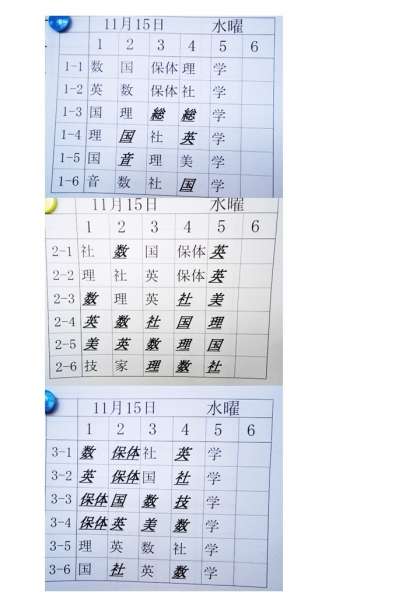 11月15日 水曜
1 2 3 4 5 6
1-1 数 国 保体 理 学
1-2 英 数 保体 社 学
1-3 国 理 総 総 学
1-4 理 国 社 英 学
1-5 国 音 理 美 学
1-6 音 数 社 国 学
11月15日 水曜
1 2 3 4 5 6
2-1 社 数 国 保体 英
2-2 理 社 英 保体 英
2-3 数 理 英 社 美
2-4 英 数 社 国 理
2-5 美 英 数 理 国
2-6 技 家 理 数 社
11月15日 水曜
1 2 3 4 5 6
3-1 数 保体 社 英 学
3-2 英 保体 国 社 学
3-3 保体 国 数 技 学
3-4 保体 英 美 数 学
3-5 理 英 数 社 学
3-6 国 社 英 数 学